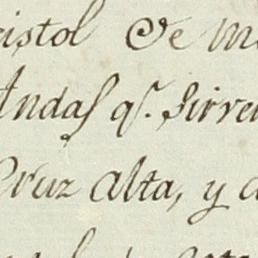 ristol de m
Andas q.^ sirre
Cruz alta, y d